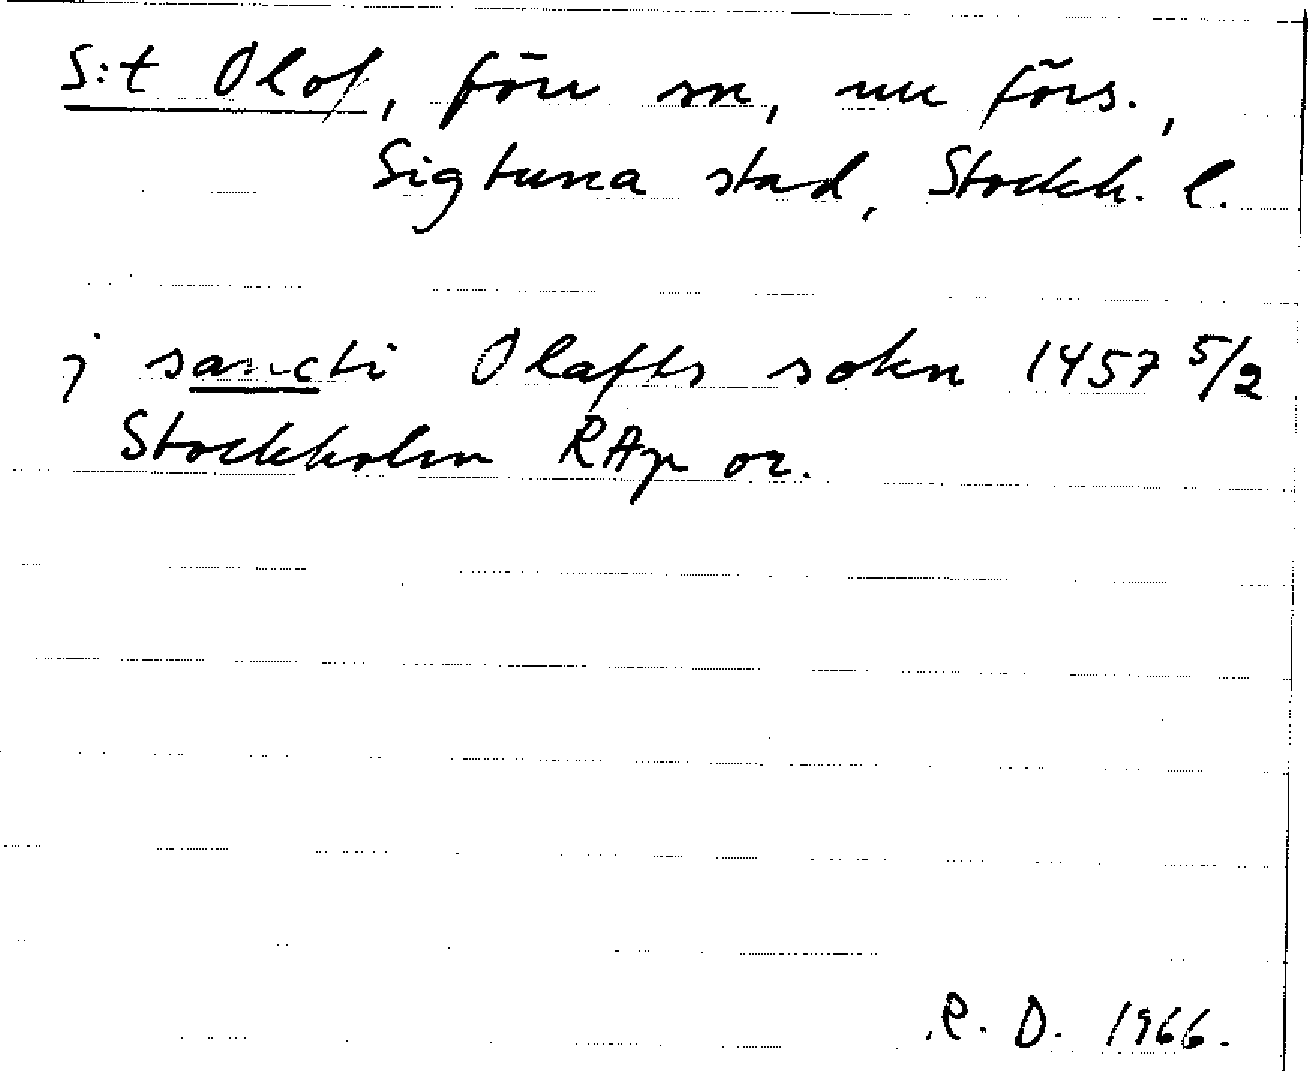 S:t Olof, förr sn, nu förs.,
Sigtuna stad, Stockh. l.
j sancti Olaffs sokn 1457 5/2
Stockholm RAp or.
R. D. 1966.